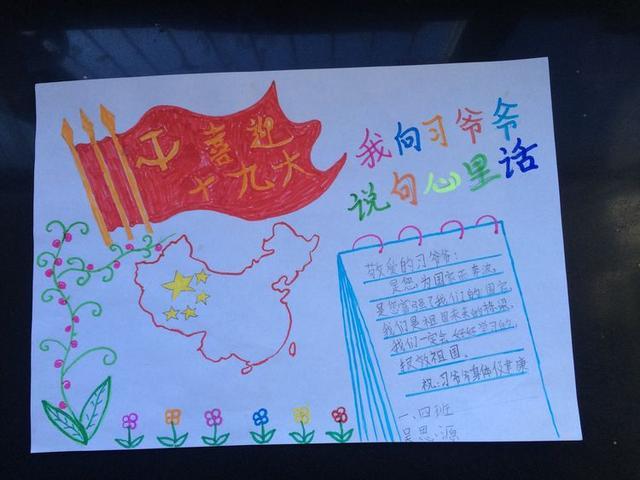 喜迎
十九大
我向习爷爷
说句心里话
敬爱的习爷爷:
是您,为国家而奔波,
是您富强了我们的国家,
我们是祖国未来的栋梁,
我们一定会好好学习的,
报效祖国。
祝:习爷爷身体健康
一、四班
吴思源